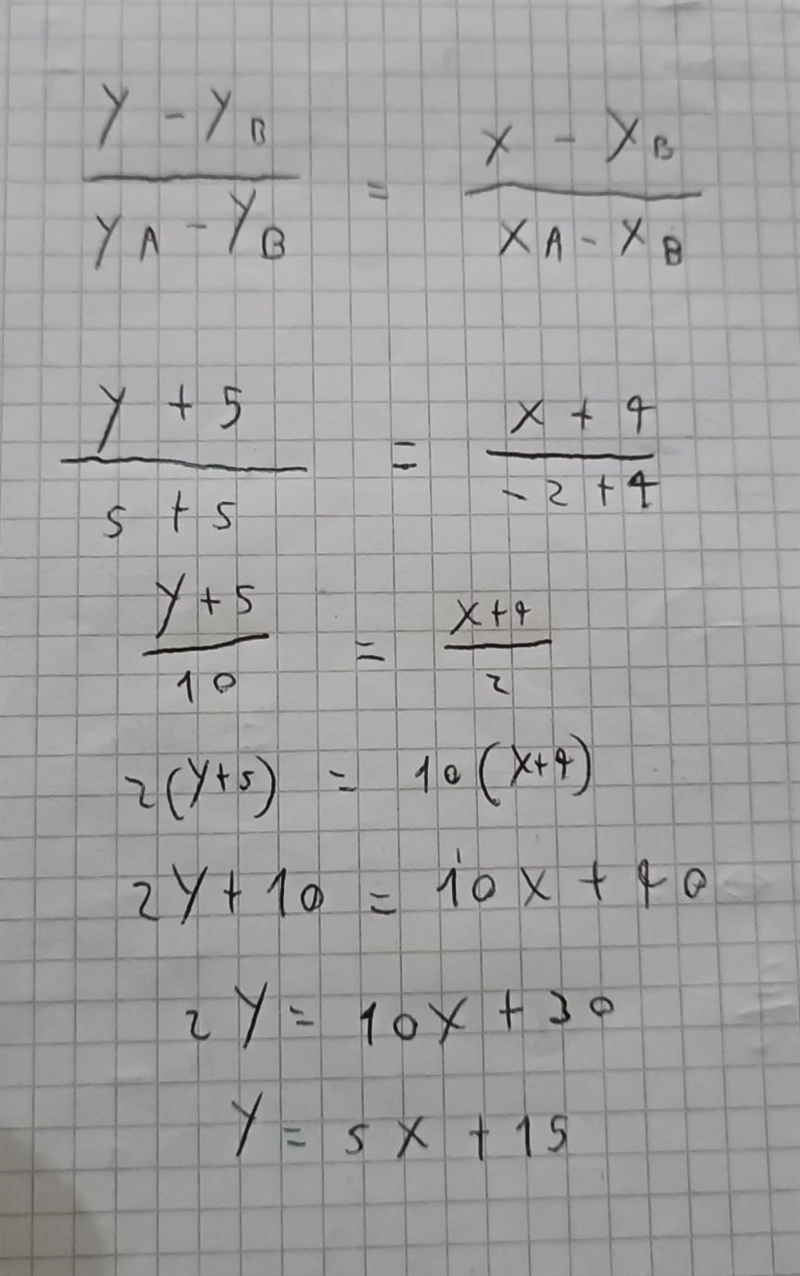 y - y_B / y_A - y_B = x - x_B / x_A - x_B
y + 5 / 5 + 5 = x + 4 / -2 + 4
y + 5 / 10 = x + 4 / 2
2(y+5) = 10(x+4)
2y + 10 = 10x + 40
2y = 10x + 30
y = 5x + 15